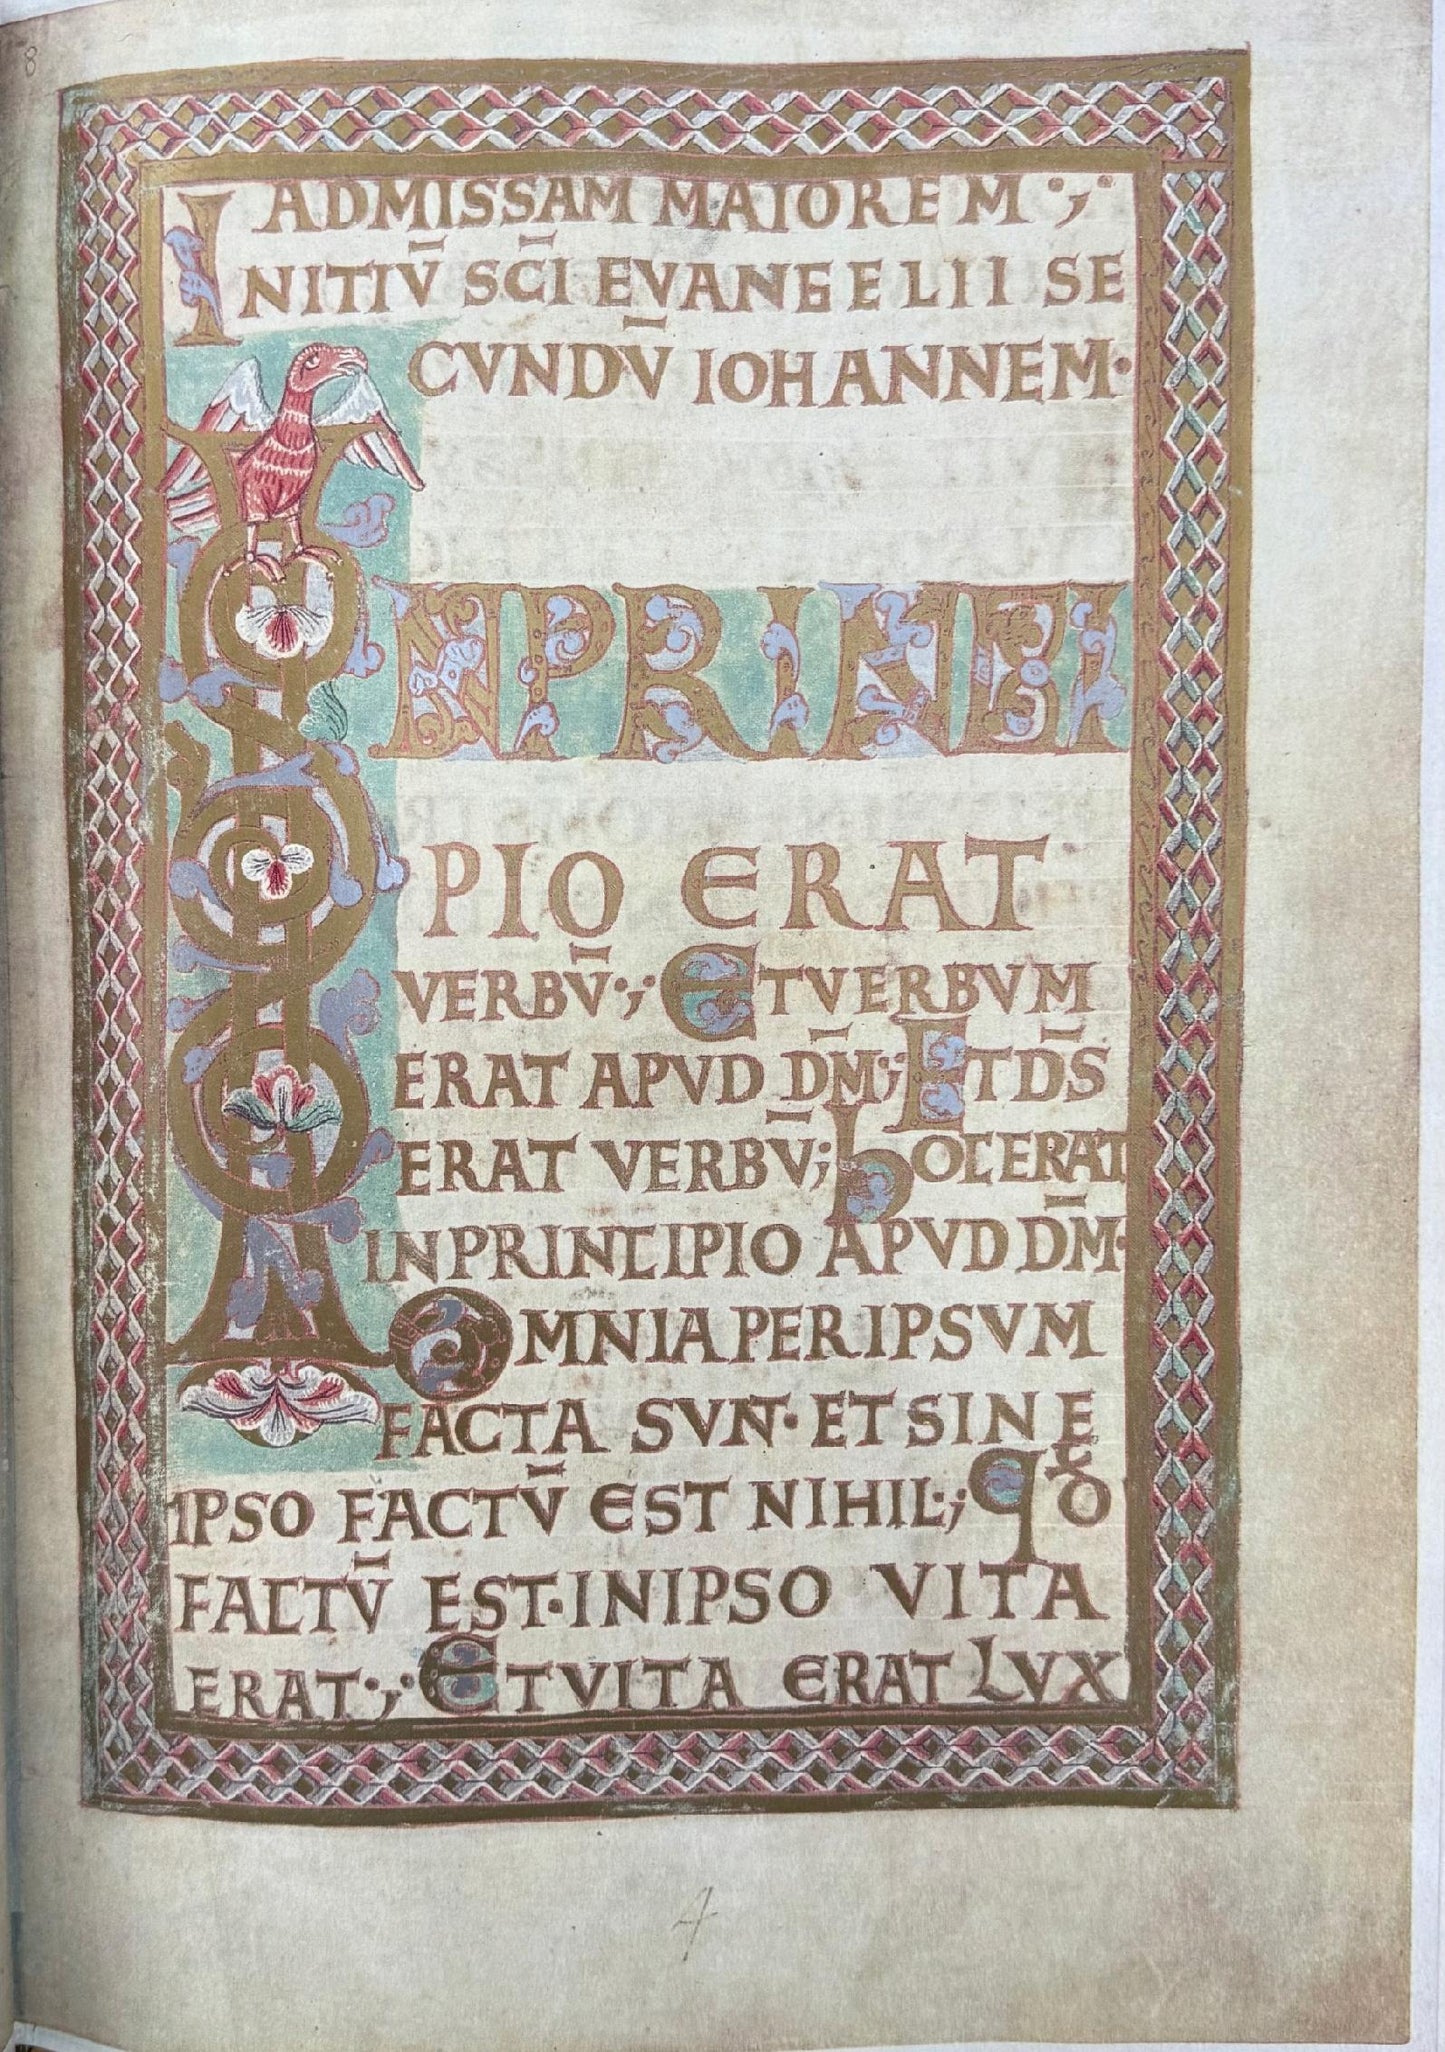 8
ADMISSAM MAIOREM·;·
INITIV̄ SC̄I EVANGELII SE
CVNDV̄ IOHANNEM·
INPRINCI
PIO ERAT
VERBV̄·;· ETVERBVM
ERAT APVD DM̄; ETDS̄
ERAT VERBV̄; hOCERAT
INPRINCIPIO APVD DM̄·
OMNIA PER IPSVM
FACTA SVNT· ET SINE
IPSO FACTV̄ EST NIHIL·; qđ
FACTV̄ EST· INIPSO VITA
ERAT·;· ETVITA ERAT LVX
4